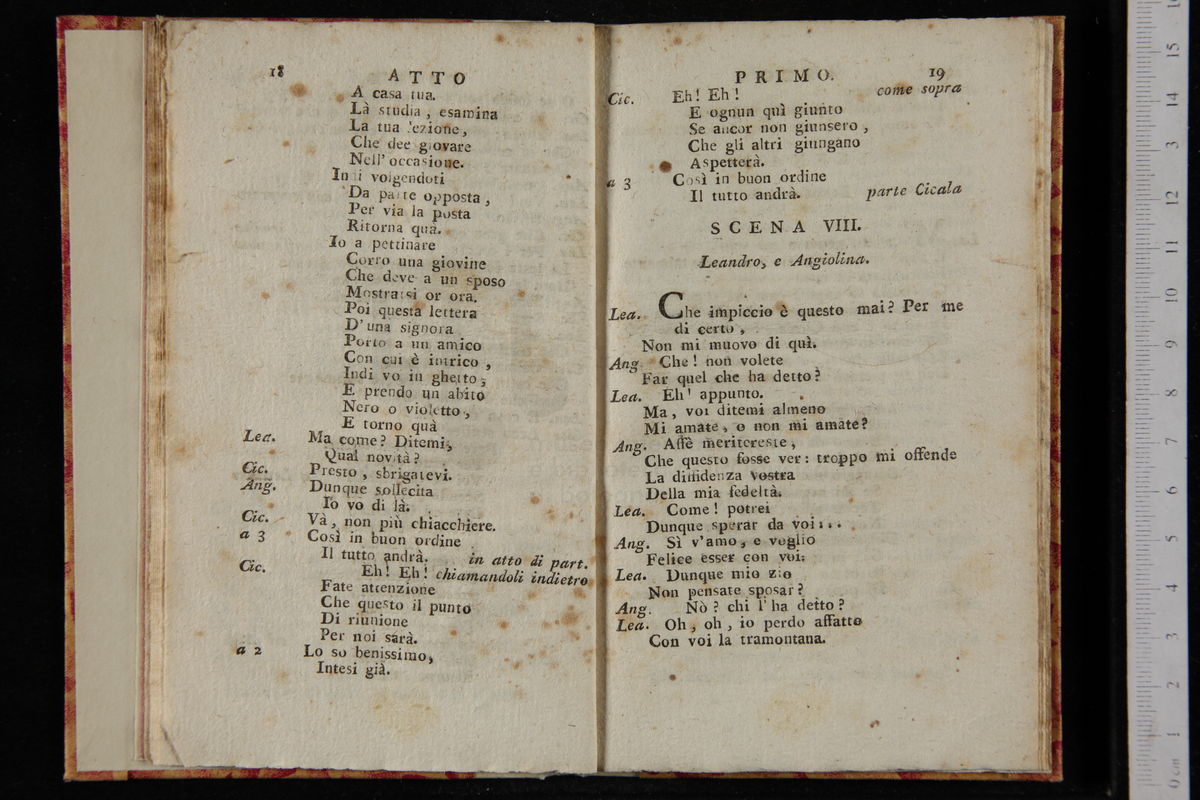 18 ATTO
A casa tua.
Là studia, esamina
La tua lezione,
Che dee giovare
Nell' occasione.
Indi volgendoti
Da parte opposta,
Per via la posta
Ritorna quà.
Io a pettinare
Corro una giovine
Che deve a un sposo
Mostrarsi or ora.
Poi questa lettera
D'una signora
Porto a un amico
Con cui è intrico,
Indi vo in ghetto,
E prendo un abito
Nero o violetto,
E torno quà
Lea. Ma come? Ditemi,
Qual novità?
Cic. Presto, sbrigatevi.
Ang. Dunque sollecita
Io vo di là.
Cic. Và, non più chiacchiere.
a 3 Così in buon ordine
Il tutto andrà. in atto di part.
Cic. Eh! Eh! chiamandoli indietro
Fate attenzione
Che questo il punto
Di riunione
Per noi sarà.
a 2 Lo so benissimo,
Intesi già.
PRIMO. 19
Cic. Eh! Eh! come sopra
E ognun quì giunto
Se ancor non giunsero,
Che gli altri giungano
Aspetterà.
a 3 Così in buon ordine
Il tutto andrà. parte Cicala
SCENA VIII.
Leandro, e Angiolina.
Lea. Che impiccio è questo mai? Per me
di certo,
Non mi muovo di quì.
Ang. Che! non volete
Far quel che ha detto?
Lea. Eh! appunto.
Ma, voi ditemi almeno
Mi amate, o non mi amate?
Ang. Affè meritereste,
Che questo fosse ver: troppo mi offende
La diffidenza vostra
Della mia fedeltà.
Lea. Come! potrei
Dunque sperar da voi...
Ang. Sì v'amo, e voglio
Felice esser con voi.
Lea. Dunque mio zio
Non pensate sposar?
Ang. Nò? chi l'ha detto?
Lea. Oh, oh, io perdo affatto
Con voi la tramontana.
0 cm 1 2 3 4 5 6 7 8 9 10 11 12 3 14 15 16